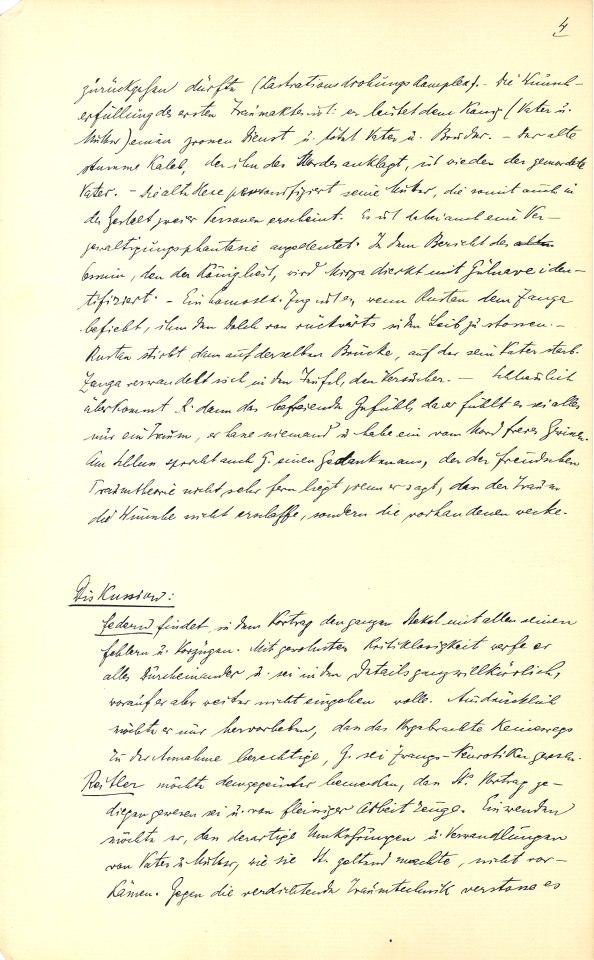 4
zurückgehen dürfte (Kastrationsdrohungskomplex). - Die Wunsch-
erfüllung des ersten Traumaktes ist: er leistet dem König (Vater u.
Mutter) einen grossen Dienst u. tötet Vater u. Bruder. - Der alte
stumme Kaleb, der ihn des Mordes anklagt, ist wieder der gemordete
Vater. - Die alte Hexe personifiziert seine Mutter, die somit auch in
der Gestalt zweier Personen erscheint. Es ist dabei auch eine Ver-
gewaltigungsphantasie angedeutet. In dem Bericht des alten
, den der König liest, wird Mirza direkt mit Gülnare iden-
tifiziert. - Ein homosex. Zug ist es, wenn Rustan dem Zanga
befiehlt, ihm den Dolch von rückwärts in den Leib zu stossen. -
Rustan stirbt dann auf derselben Brücke, auf der sein Vater starb.
Zanga verwandelt sich in den Teufel, den Versucher. - Schliesslich
überkommt R. dann das befreiende Gefühl, da er fühlt es sei alles
nur ein Traum, er habe niemand u. habe ein vom Mord freies Gewissen.
Am Schluss spricht auch G. einen Gedanken aus, der der freudschen
Traumtheorie nicht sehr fern liegt wenn er sagt, dass der Traum
die Wünsche nicht erschaffe, sondern die vorhandenen wecke.
Diskussion:
Federn findet in dem Vortrag den ganzen Stekel mit allen seinen
Fehlern u. Vorzügen. Mit gewohnter Kritiklosigkeit werfe er
alles durcheinander u. sei in den Details ganz willkürlich,
worauf er aber weiter nicht eingehen wolle. Ausdrücklich
möchte er nur hervorheben, dass das Vorgebrachte keineswegs
zu der Annahme berechtige, G. sei Zwangs-Neurotiker gewesen.
Reitler möchte demgegenüber bemerken, dass St's Vortrag ge-
diegen gewesen sei u. von fleissiger Arbeit zeuge. Einwenden
möchte er, dass derartige Umkehrungen u. Verwandlungen
von Vater u. Mutter, wie sie St. geltend machte, nicht vor-
kämen. Gegen die verdichtende Traumtechnik verstosse es